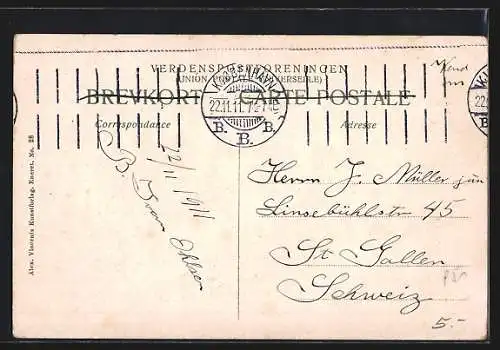 VERDENSPOSTFORENINGEN
(UNION POSTALE UNIVERSELLE)
BREVKORT — CARTE POSTALE
Correspondance
Adresse
KJØBENHAVN
22.11.11. 7
B. B. B.
22/11 1911
Herrn J. Müller jun
Linsebühlstr 45
St Gallen
Schweiz
5.-
Alex. Vincents Kunstforlag. Eneret. No. 28